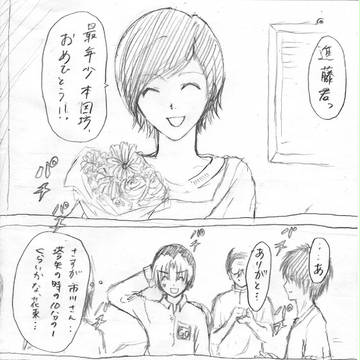 進藤君っ
最年少本因坊、
おめでとう!!
パチ
パチ
パチ
…あ
ありがと…
さすが市川さん…
塔矢の時の10分の1
くらいかな、花束…